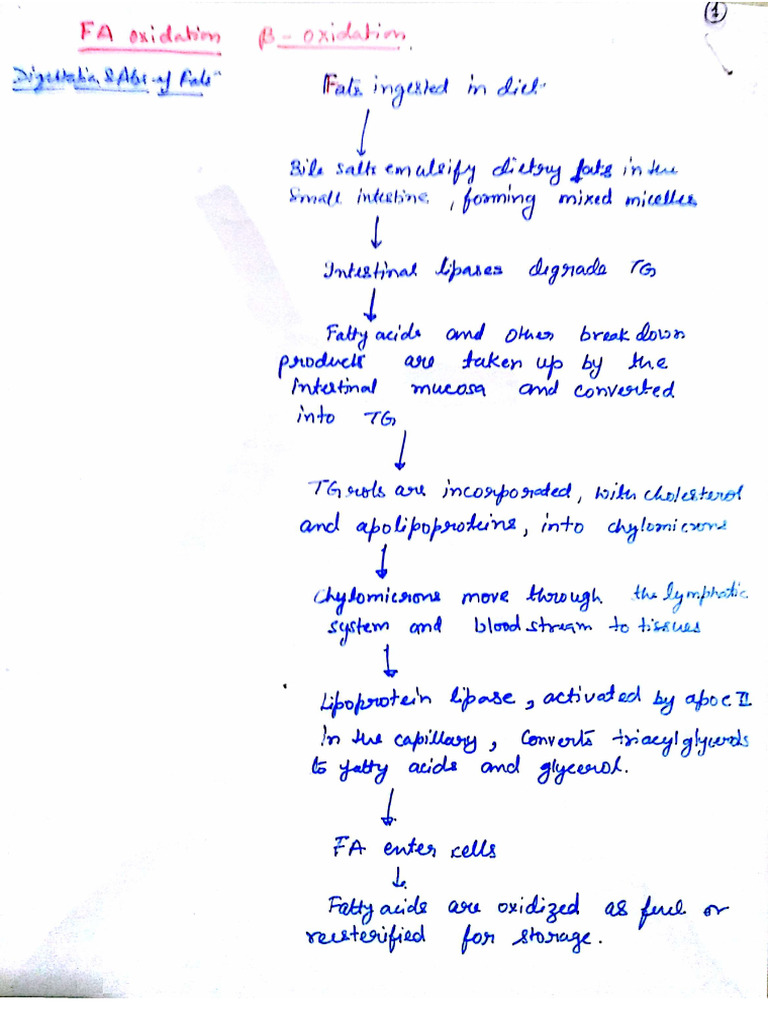 ①
FA oxidation β - oxidation
Digestation & Abs. of Fats
Fats ingested in diet
Bile salts emulsify dietary fats in the
small intestine, forming mixed micelles
Intestinal lipases degrade TG
Fatty acids and other breakdown
products are taken up by the
intestinal mucosa and converted
into TG
TGrols are incorporated, with cholesterol
and apolipoproteins, into chylomicrons
Chylomicrons move through the lymphatic
system and bloodstream to tissues
Lipoprotein lipase, activated by apoc II
in the capillary, converts triacylglycerols
to fatty acids and glycerol.
FA enter cells
Fatty acids are oxidized as fuel or
reesterified for storage.